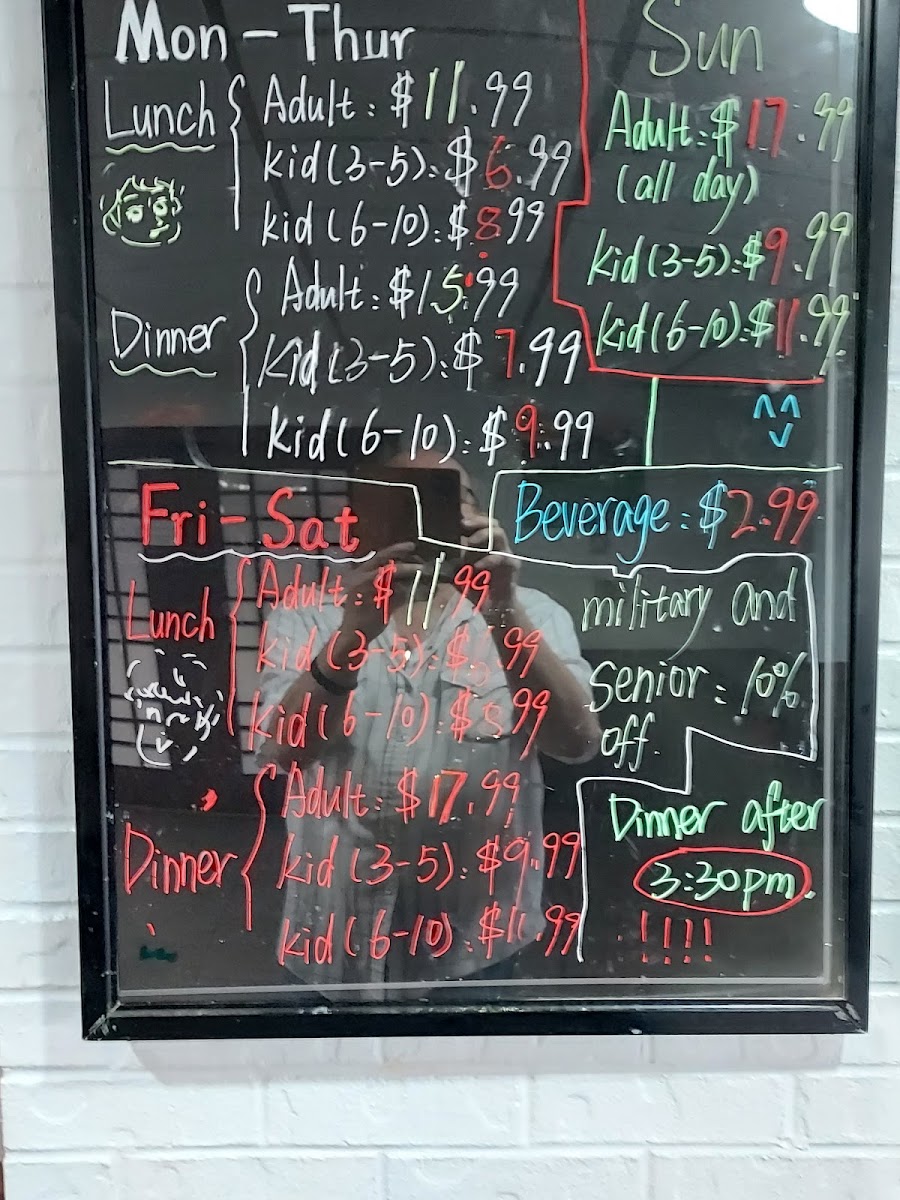 Mon - Thur
Lunch
Adult: $11.99
kid(3-5): $6.99
kid(6-10): $8.99
Dinner
Adult: $15.99
kid(3-5): $7.99
kid(6-10): $9.99
Sun
Adult: $17.99
(all day)
kid(3-5): $9.99
kid(6-10): $11.99
Beverage: $2.99
Fri - Sat
Lunch
Adult: $11.99
kid(3-5): $ .99
kid(6-10): $8.99
Dinner
Adult: $17.99
kid(3-5): $9.99
kid(6-10): $11.99
military and
Senior: 10%
off.
Dinner after
3:30pm.
!!!!